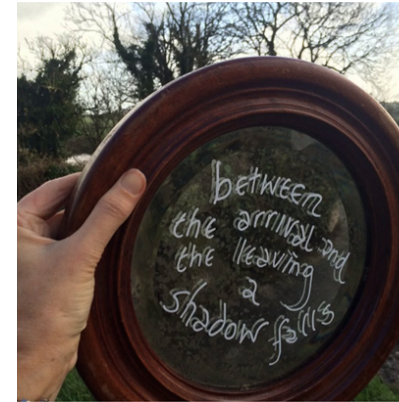 between
the arrival and
the leaving
a
shadow falls